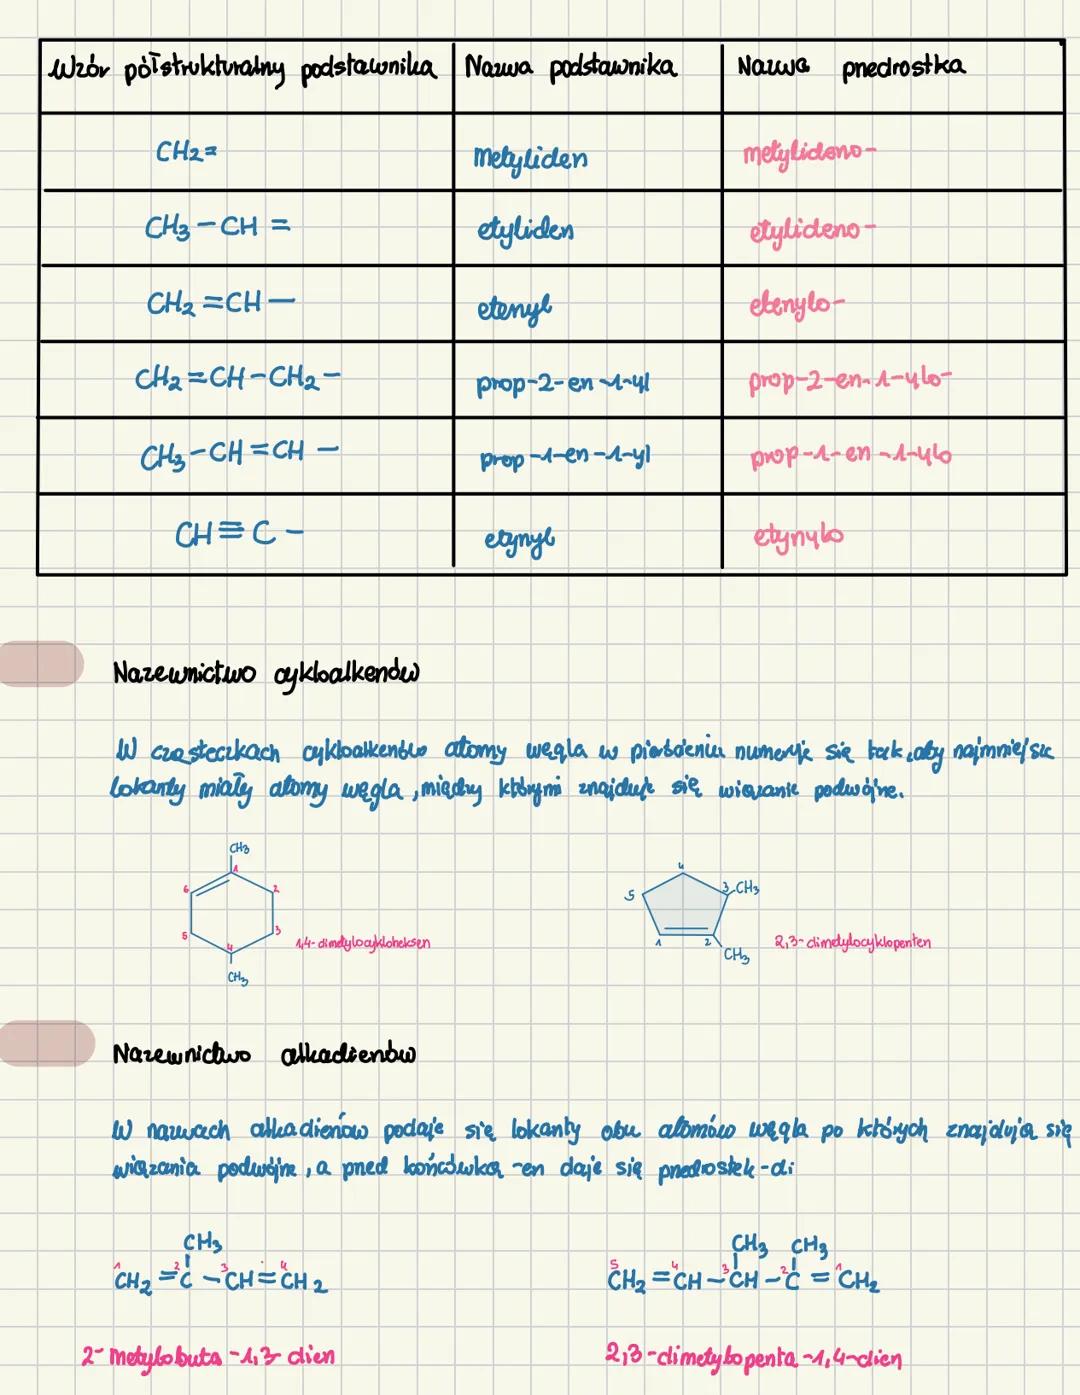 Wzór półstrukturalny podstawnika Nazwa podstawnika Nazwa przedrostka
CH2= Metyliden metylideno-
CH3-CH= etyliden etylideno-
CH2=CH- etenyl etenylo-
CH2=CH-CH2- prop-2-en-1-yl prop-2-en-1-ylo-
CH3-CH=CH- prop-1-en-1-yl prop-1-en-1-ylo
CH≡C- etynyl etynylo
Nazewnictwo cykloalkenów
W cząsteczkach cykloalkenów atomy węgla w pierścieniu numeruje się tak, aby najmniejsze
lokanty miały atomy węgla, między którymi znajduje się wiązanie podwójne.
CH3
1
6 2
5 3
4
CH3
1,4-dimetylocykloheksen
4
5 3 CH3
1 2
CH3
2,3-dimetylocyklopenten
Nazewnictwo alkadienów
W nazwach alkadienów podaje się lokanty obu atomów węgla po których znajdują się
wiązania podwójne, a przed końcówką -en daje się przedrostek -di
CH3
1 2 3 4
CH2=C-CH=CH2
2-metylobuta-1,3-dien
CH3 CH3
5 4 3 2 1
CH2=CH-CH-C=CH2
2,3-dimetylopenta-1,4-dien